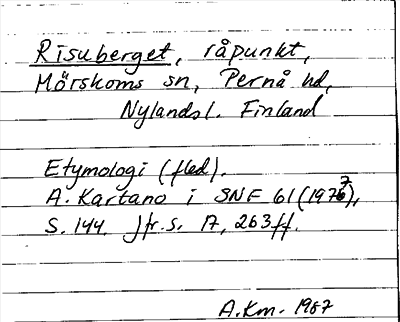 Risuberget, råpunkt,
Mörskoms sn, Pernå hd,
Nylandsl. Finland
Etymologi (fled).
A. Kartano i SNF 61 (1977),
S. 144. Jfr. s. 17, 263 ff.
A.Km. 1987